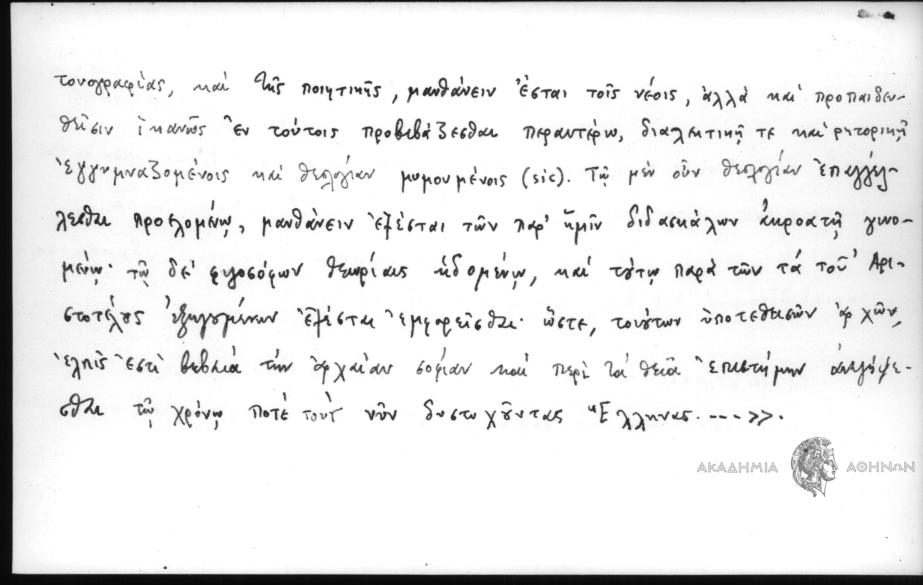 τονογραφίας, καὶ τῆς ποιητικῆς, μανθάνειν ἔσται τοῖς νέοις, ἀλλὰ καὶ προπαιδευ-
θεῖσιν ἱκανῶς ἐν τούτοις προβεβάζεσθαι περαντέρω, διαλεκτικῇ τε καὶ ρητορικῇ
ἐγγυμναζομένοις καὶ θεολογίαν μυμουμένοις (sic). Τῷ μὲν οὖν θεολογίαν ἐπαγγέλ-
λεσθαι προελομένῳ, μανθάνειν ἐξέσται τῶν παρ' ἡμῖν διδασκάλων ἀκροατῇ γινο-
μένῳ· τῷ δὲ φιλοσόφων θεωρίαις ἡδομένῳ, καὶ τούτῳ παρὰ τῶν τὰ τοῦ Ἀρι-
στοτέλους ἐξηγουμένων ἐξέσται ἐμφορεῖσθαι· ὥστε, τούτων ὑποτεθεισῶν ἀρχῶν,
ἐλπὶς ἐστὶ βεβαία τὴν ἀρχαίαν σοφίαν καὶ περὶ τὰ θεῖα ἐπιστήμην ἀναλήψε-
σθαι τῷ χρόνῳ ποτὲ τοὺς νῦν δυστυχοῦντας Ἕλληνας. ---->>.
ΑΚΑΔΗΜΙΑ ΑΘΗΝΩΝ